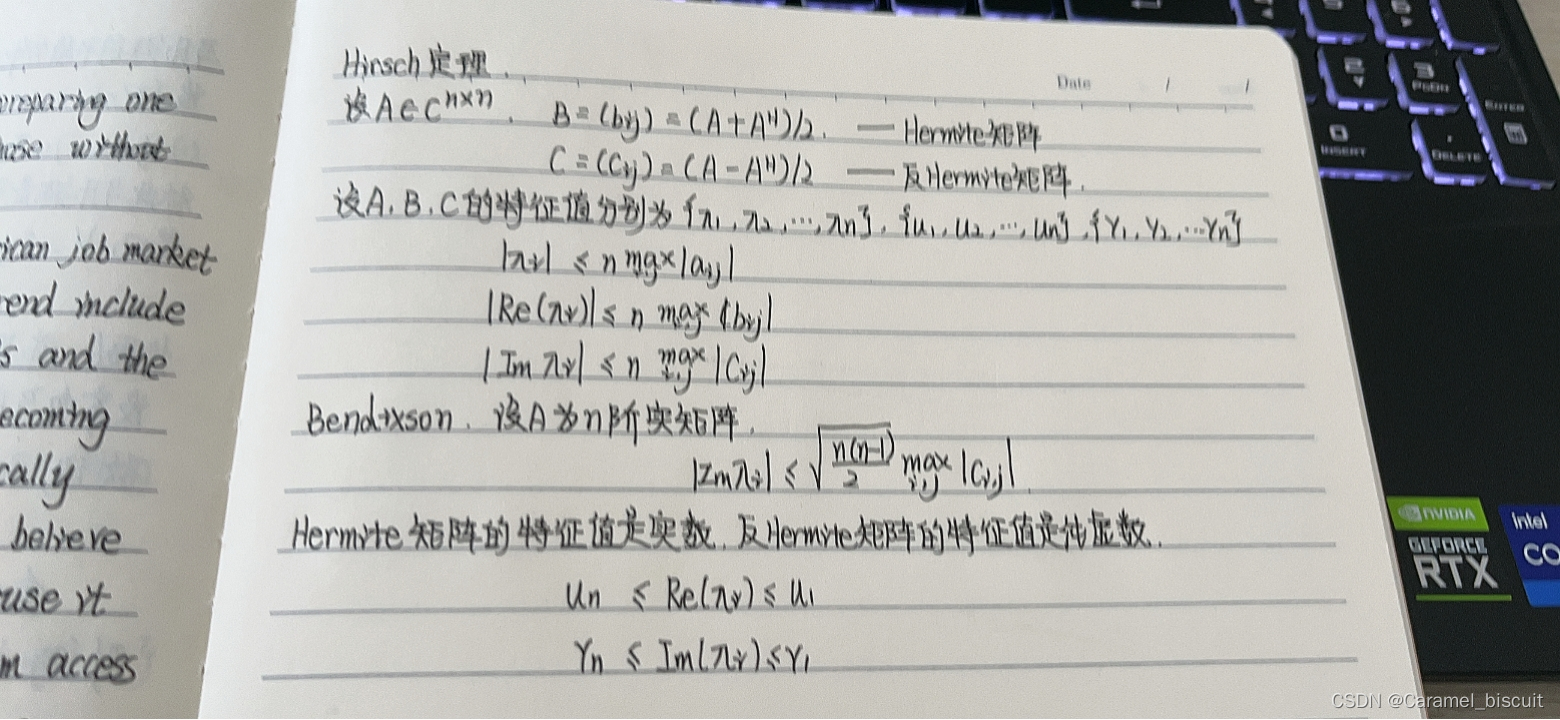 preparing one
without
ican job market
rend include
s and the
ecoming
cally
believe
use it
m access
Hirsch定理.
Date / /
设A∈C^{n×n}. B=(b_{ij})=(A+A^H)/2. — Hermite矩阵
C=(C_{ij})=(A-A^H)/2 — 反Hermite矩阵.
设A.B.C的特征值分别为{λ_1,λ_2,…,λ_n}.{u_1,u_2,…,u_n}.{γ_1,γ_2,…γ_n}
|λ_i| ≤ n max_{i,j}|a_{ij}|
|Re(λ_i)| ≤ n max_{i,j}|b_{ij}|
|Im λ_i| ≤ n max_{i,j}|C_{ij}|
Bendixson. 设A为n阶实矩阵.
|Imλ_i| ≤ √(n(n-1)/2) max_{i,j}|C_{i,j}|
Hermite矩阵的特征值是实数. 反Hermite矩阵的特征值是纯虚数.
u_n ≤ Re(λ_i) ≤ u_1
γ_n ≤ Im(λ_i) ≤ γ_1
2
3
PgDn
0
INSERT
.
DELETE
ENTER
NVIDIA
GEFORCE
RTX
intel
CO
CSDN @Caramel_biscuit